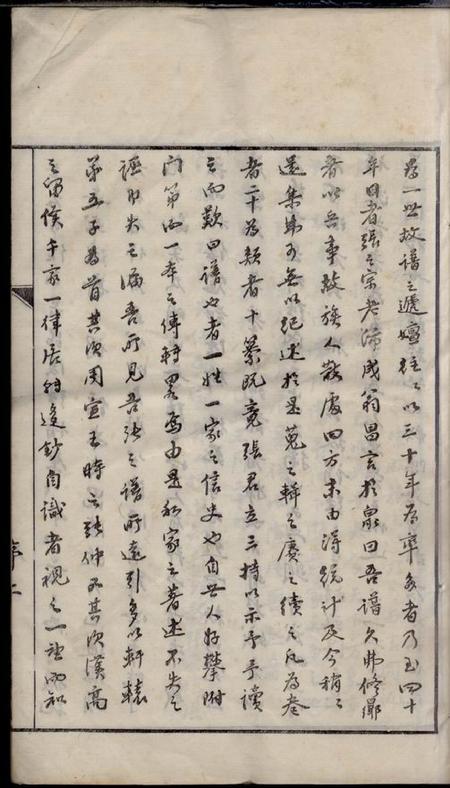 為一世故譜之遞嬗往々以三十年為率多者乃至四十
年曩者張之宗老沛成翁昌言於眾曰吾譜久弗修曏
者以兵事致族人散處四方末由得統計及今稍々
還集弗可無以紀述於是蒐之輯之賡之續之凡為卷
者二十為類者十纂既竟張君立三持以示予予讀
之而歎曰譜也者一姓一家之信史也自世人好攀附
門第而一本之傳轉略焉由是私家之著述不失之
誣即失之漏吾所見吾張之譜所遠引多以軒轅
第五子為首其次周宣王時之張仲又其次漢高
之留侯千家一律居然逡鈔自識者視之一望而知
序二